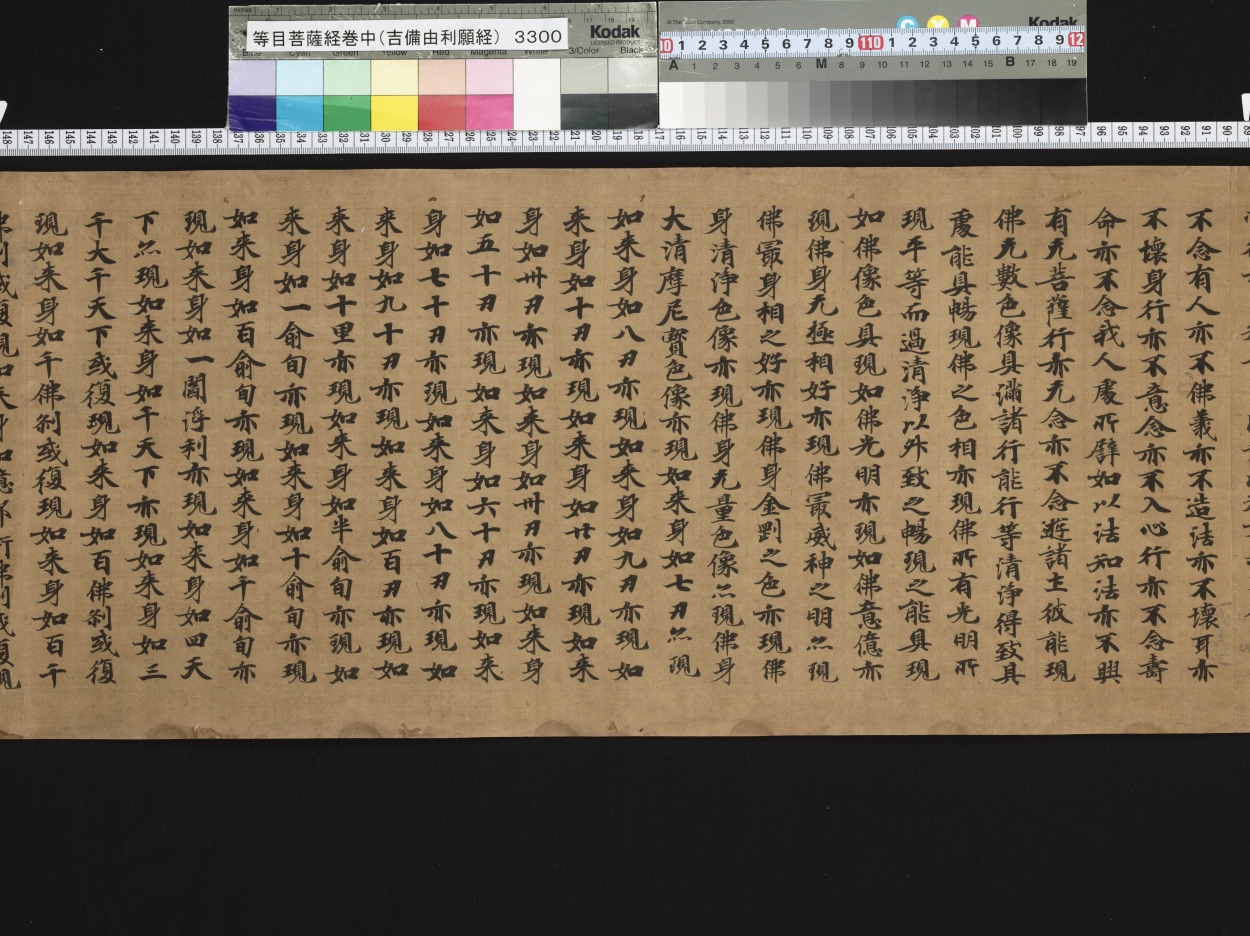 等目菩薩経巻中(吉備由利願経) 3300
Kodak
LICENSED PRODUCT
Kodak
不念有人亦不佛義亦不造法亦不壞耳亦
不壞身行亦不意念亦不入心行亦不念壽
命亦不念我人處所譬如以法知法亦不興
有无菩薩行亦无念亦不念遊諸土彼能現
佛无數色像具滿諸行能行等清淨得致具
處能具暢現佛之色相亦現佛所有光明所
現平等而過清淨以外致之暢現之能具現
如佛像色具現如佛光明亦現如佛意億亦
現佛身无極相好亦現佛冣威神之明亦現
佛冣身相之好亦現佛身金剛之色亦現佛
身清淨色像亦現佛身无量色像亦現佛身
大清摩尼寳色像亦現如来身如七刃亦現
如来身如八刃亦現如来身如九刃亦現如
来身如十刃亦現如来身如廿刃亦現如来
身如卅刃亦現如来身如卌刃亦現如来身
如五十刃亦現如来身如六十刃亦現如来
身如七十刃亦現如来身如八十刃亦現如
来身如九十刃亦現如来身如百刃亦現如
来身如十里亦現如来身如半俞旬亦現如
来身如一俞旬亦現如来身如十俞旬亦現
如来身如百俞旬亦現如来身如千俞旬亦
現如来身如一閻浮利亦現如来身如四天
下亦現如来身如千天下亦現如来身如三
千大千天下或復現如来身如百佛刹或復
現如来身如千佛刹或復現如来身如百千